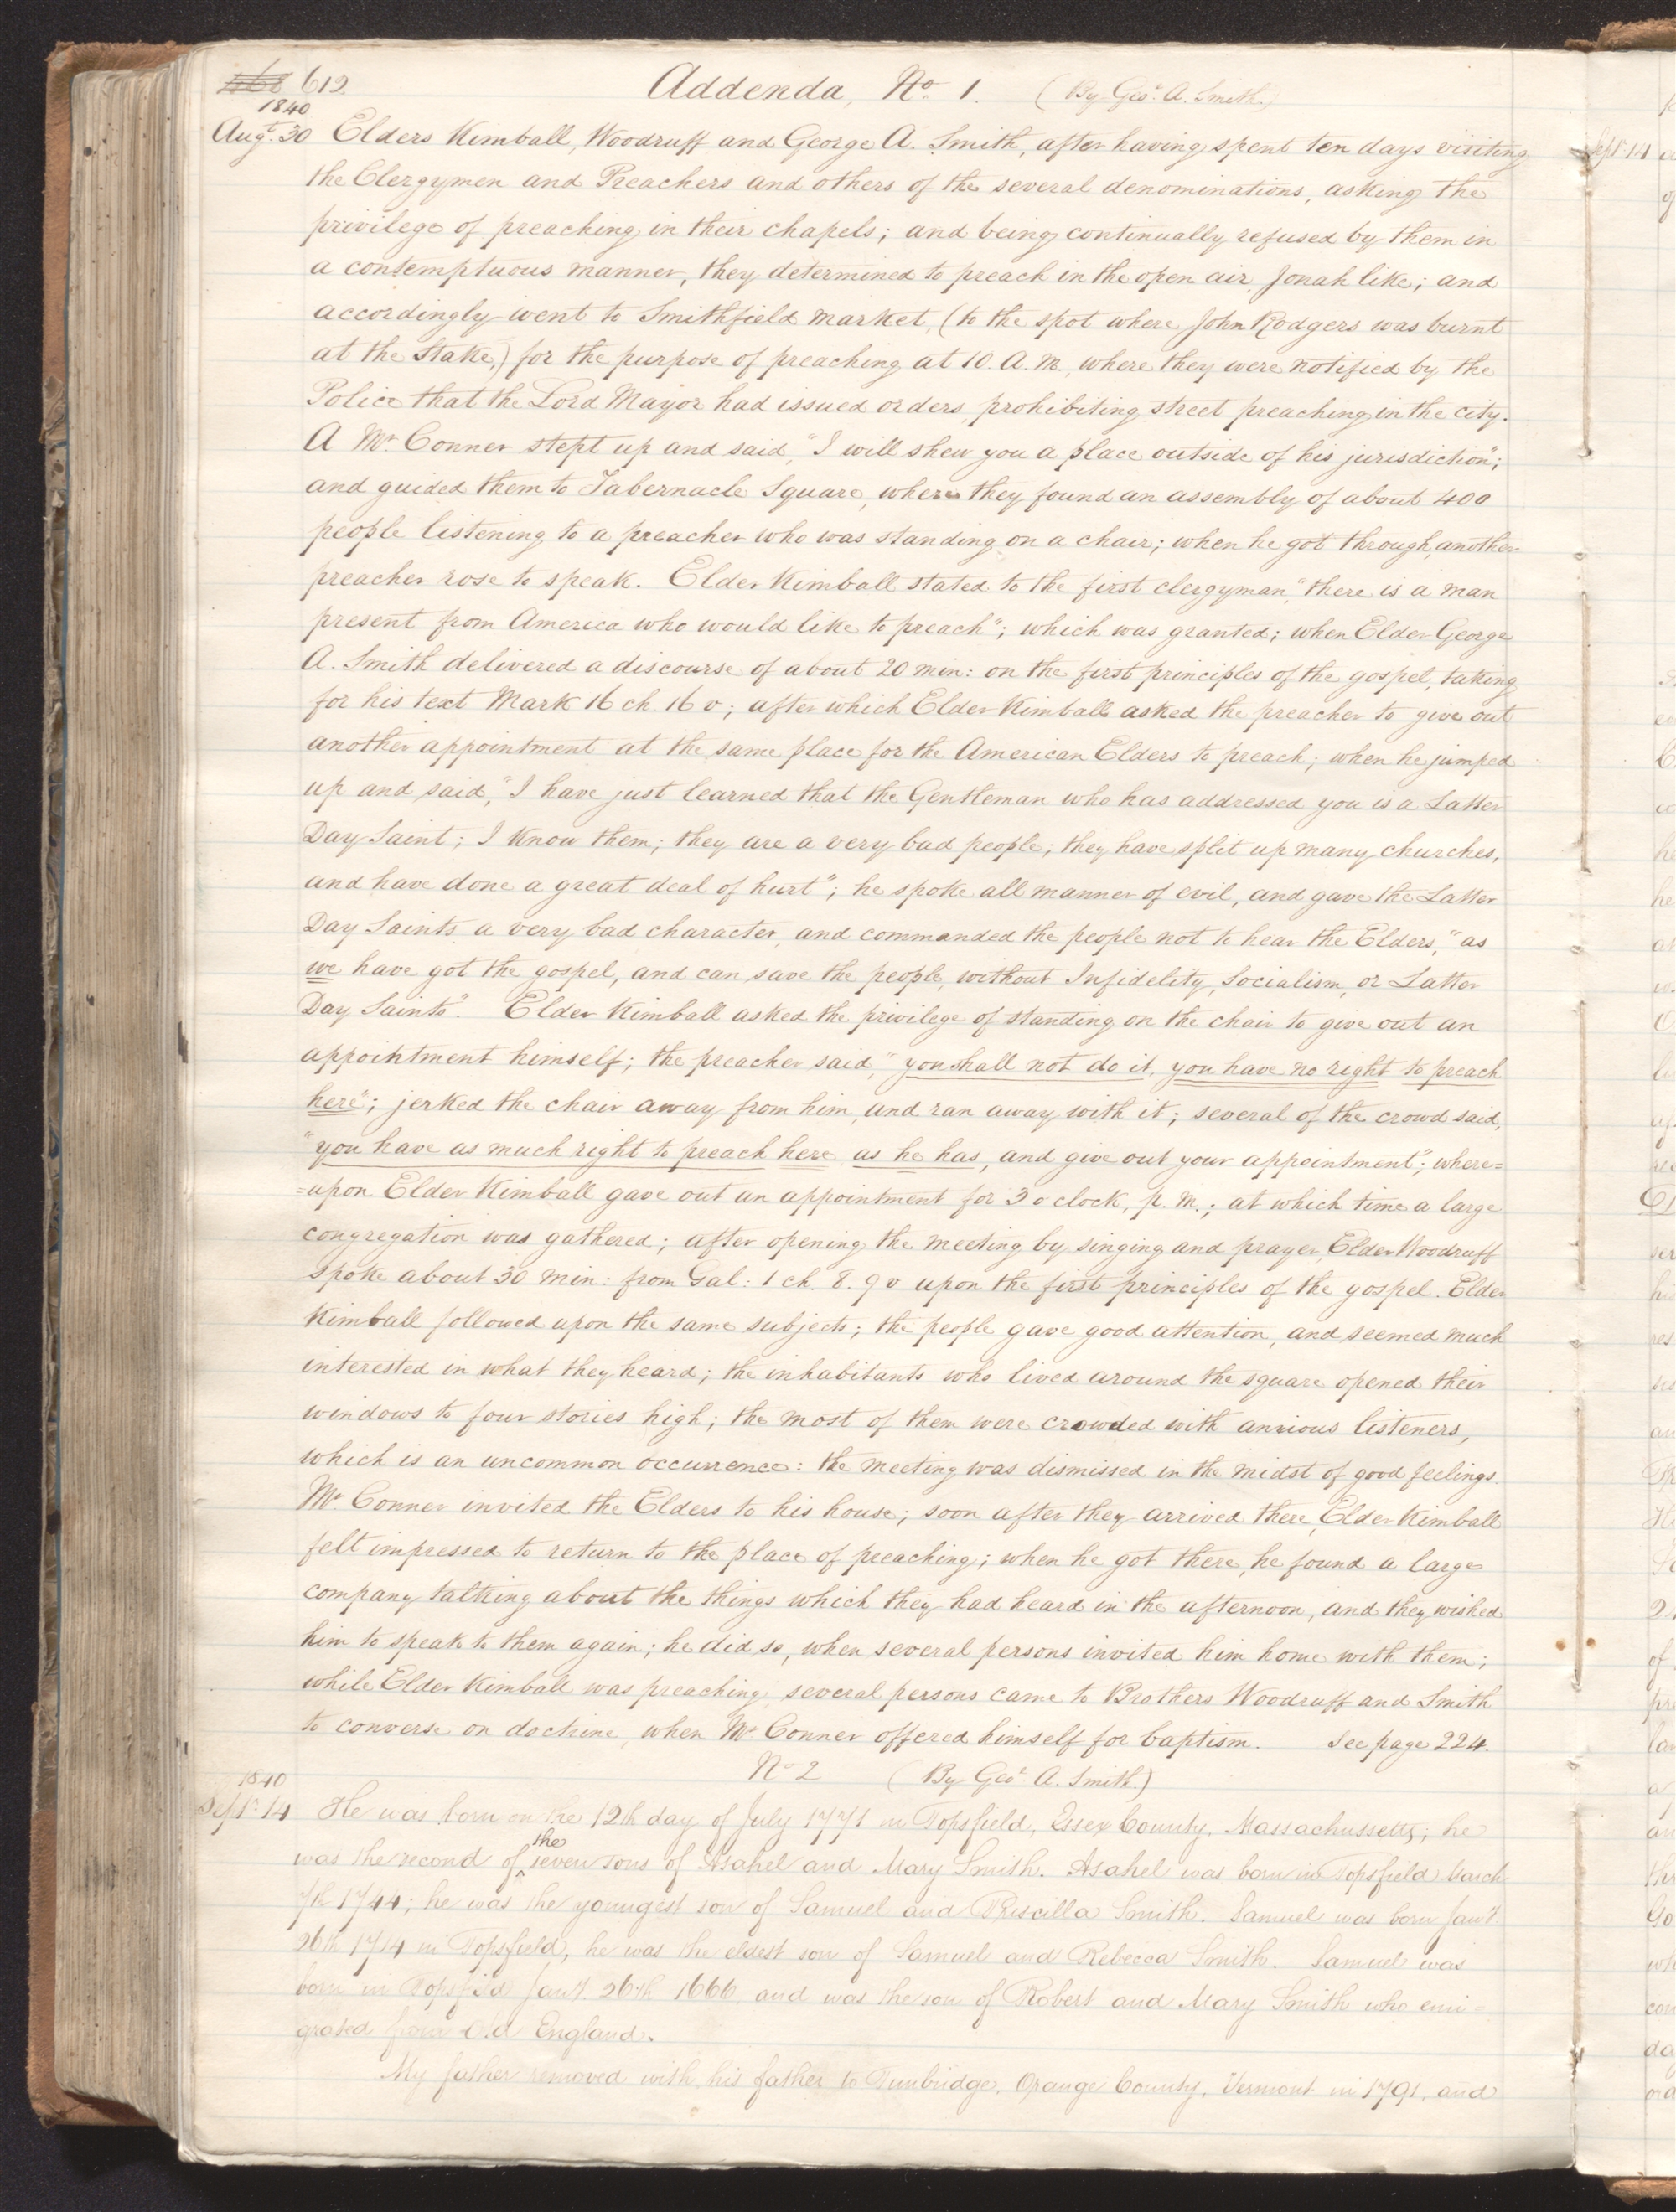 612 Addenda, No. 1. (By Geo. A. Smith.)
1840
Augt. 30 Elders Kimball, Woodruff and George A. Smith, after having spent ten days visiting
the Clergymen and Preachers and others of the several denominations, asking the
privilege of preaching in their chapels; and being continually refused by them in
a contemptuous manner, they determined to preach in the open air, Jonah like; and
accordingly went to Smithfield market, (to the spot where John Rodgers was burnt
at the stake,) for the purpose of preaching at 10. A. M. where they were notified by the
Police that the Lord Mayor had issued orders prohibiting street preaching in the city.
A Mr. Conner stept up and said, "I will shew you a place outside of his jurisdiction";
and guided them to Tabernacle Square, where they found an assembly of about 400
people listening to a preacher who was standing on a chair; when he got through, another
preacher rose to speak. Elder Kimball stated to the first clergyman, "there is a man
present from America who would like to preach"; which was granted; when Elder George
A. Smith delivered a discourse of about 20 min: on the first principles of the gospel, taking
for his text Mark 16 ch 16 v; after which Elder Kimball asked the preacher to give out
another appointment at the same place for the American Elders to preach; when he jumped
up and said, "I have just learned that the Gentleman who has addressed you is a Latter
Day Saint; I know them; they are a very bad people; they have split up many churches,
and have done a great deal of hurt"; he spoke all manner of evil, and gave the Latter
Day Saints a very bad character, and commanded the people not to hear the Elders, "as
we have got the gospel, and can save the people, without Infidelity, Socialism, or Latter
Day Saints". Elder Kimball asked the privilege of standing on the chair to give out an
appointment himself; the preacher said, "you shall not do it, you have no right to preach
here"; jerked the chair away from him, and ran away with it; several of the crowd said,
"you have as much right to preach here as he has, and give out your appointment"; where=
=upon Elder Kimball gave out an appointment for 3 o clock, p. m.; at which time a large
congregation was gathered; after opening the meeting by singing and prayer, Elder Woodruff
spoke about 30 min: from Gal: 1 ch. 8. 9 v upon the first principles of the gospel. Elder
Kimball followed upon the same subjects; the people gave good attention, and seemed much
interested in what they heard; the inhabitants who lived around the square opened their
windows to four stories high; the most of them were crowded with anxious listeners,
which is an uncommon occurrence: the meeting was dismissed in the midst of good feelings.
Mr Conner invited the Elders to his house; soon after they arrived there, Elder Kimball
felt impressed to return to the place of preaching; when he got there, he found a large
company talking about the things which they had heard in the afternoon, and they wished
him to speak to them again; he did so, when several persons invited him home with them;
while Elder Kimball was preaching, several persons came to Brothers Woodruff and Smith
to converse on doctrine, when Mr Conner offered himself for baptism. See page 224.
No 2 (By Geo. A. Smith.)
1840
Sept. 14 He was born on the 12th day of July 1771 in Topsfield, Essex County, Massachussetts; he
was the second of the seven sons of Asahel and Mary Smith. Asahel was born in Topsfield March
7th 1744; he was the youngest son of Samuel and Priscilla Smith. Samuel was born Jany.
26th 1714 in Topsfield, he was the eldest son of Samuel and Rebecca Smith. Samuel was
born in Topsfield Jany. 26th 1666, and was the son of Robert and Mary Smith who emi=
grated from Old England.
My father removed with his father to Tunbridge, Orange County, Vermont in 1791, and
Sept 14